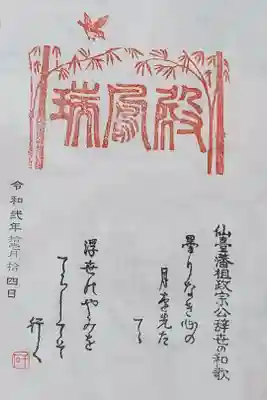 瑞鳳殿
仙臺藩祖政宗公辞世の和歌
曇りなき心の
月を先た
てゝ
浮世のやみを
てらしてそ
行く
令和弐年拾月拾四日